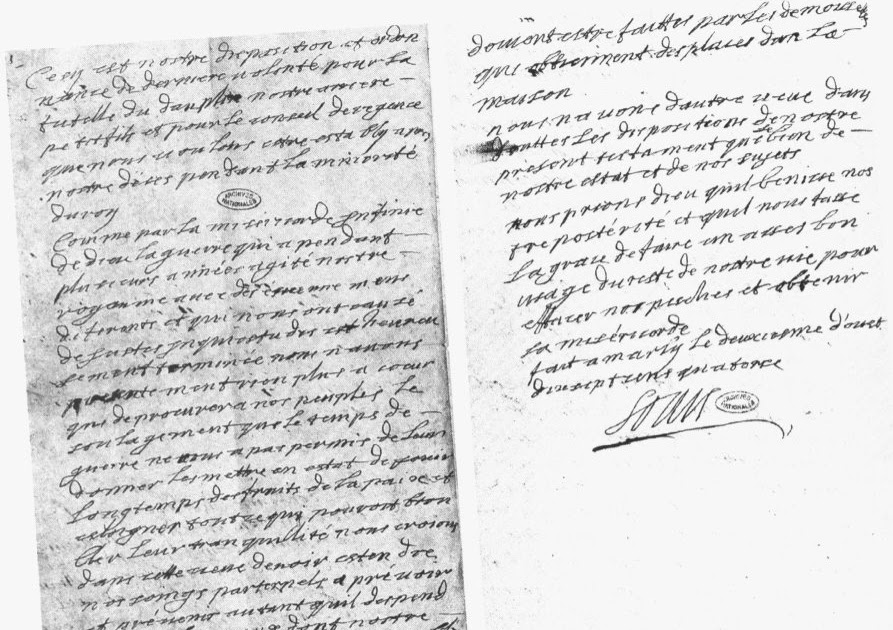 Cecy est nostre disposition et ordon
nance de derniere volonté pour la
tutelle du dauphin nostre arriere
petit fils et pour le conseil de regence
que nous voulons estre establi apres
nostre déces pendant la minorité
du roy
ARCHIVES NATIONALES
Comme par la misericorde infinie
de dieu la guerre qui a pendant
plusieurs années agité nostre
royaume avec des évenemens
diferents et qui nous ont causé
de justes inquietudes est heureu
sement terminée nous n'avons
présentement rien plus a coeur
que de procurer a nos peuples le
soulagement que le temps de
guerre ne nous a pas permis de leur
donner les mettre en estat de jouir
longtemps des fruits de la paix et
esloigner tout ce qui pouroit troub
ler leur tranquilité nous croions
dans cette veue devoir estendre
nos soings paternels a prévoir
et prévenir autant quil despend
dont nostre
doivent estre faittes par les demoiselles
qui obtienment des places dans la
maison
nous navons dautre veue dans
touttes les dispositions de nostre
présent testament que le bien de
nostre estat et de nos sujets
nous prions dieu quil benisse nos
tre postérité et quil nous fasse
la grace de faire un asses bon
usage du reste de nostre vie pour
effacer nos péches et obtenir
sa miséricorde
fait a marly le deuxiesme d'oust
dix sept cens quatorse
Louis
ARCHIVES NATIONALES